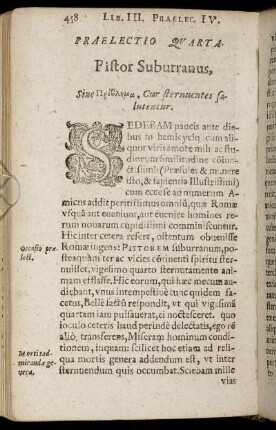 458 LIB. III. PRAELEC. IV.
PRAELECTIO QVARTA.
Pistor Suburranus,
Siue Πρόβλημα, Cur sternuentes sa-
lutentur.
SEDEBAM paucis ante die-
bus in hemicyclo cum ali-
quot viris amore mihi ac stu-
diorum similitudine
(Præsules & munere
isto, & sapientia Illustrissimi)
cum ecce se ad numerum A-
micus addit peritissimus omniũ, quæ Romæ
vsquã aut eueniunt, aut eucnire homines re-
rum nouarum cupidissimi comminiscuntur.
Hic inter cetera refert, ostentum obuenisse
Occasio præ-
lect.
Romæ ingens: PISTOREM suburranum, po-
steaquàm ter ac vicies cõtinẽti spiritu ster-
nuisset, vigesimo quarto sternutamento ani-
mam efflasse. Hic eorum, qui hæc mecum au-
diebant, vnus intempestiuè tunc quidem fa-
cetus, Bellè sactũ respondit, vt qui vigesimã
quartam iam pulsauerat, ei noctesceret. quo
ioculo ceteris haud perindè delectatis, ego rẽ
aliò transferens, Miseram hominum condi-
tionem, inquam: scilicet hoc etiam ad reli-
Mortis ad-
miranda ge-
nera.
qua mortis genera addendum est, vt inter
sternutendum quis occumbat. Sciebam mille
vias